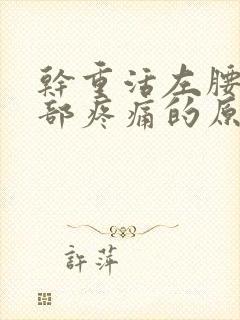 幹重活左腰
部疼痛的原
許萍